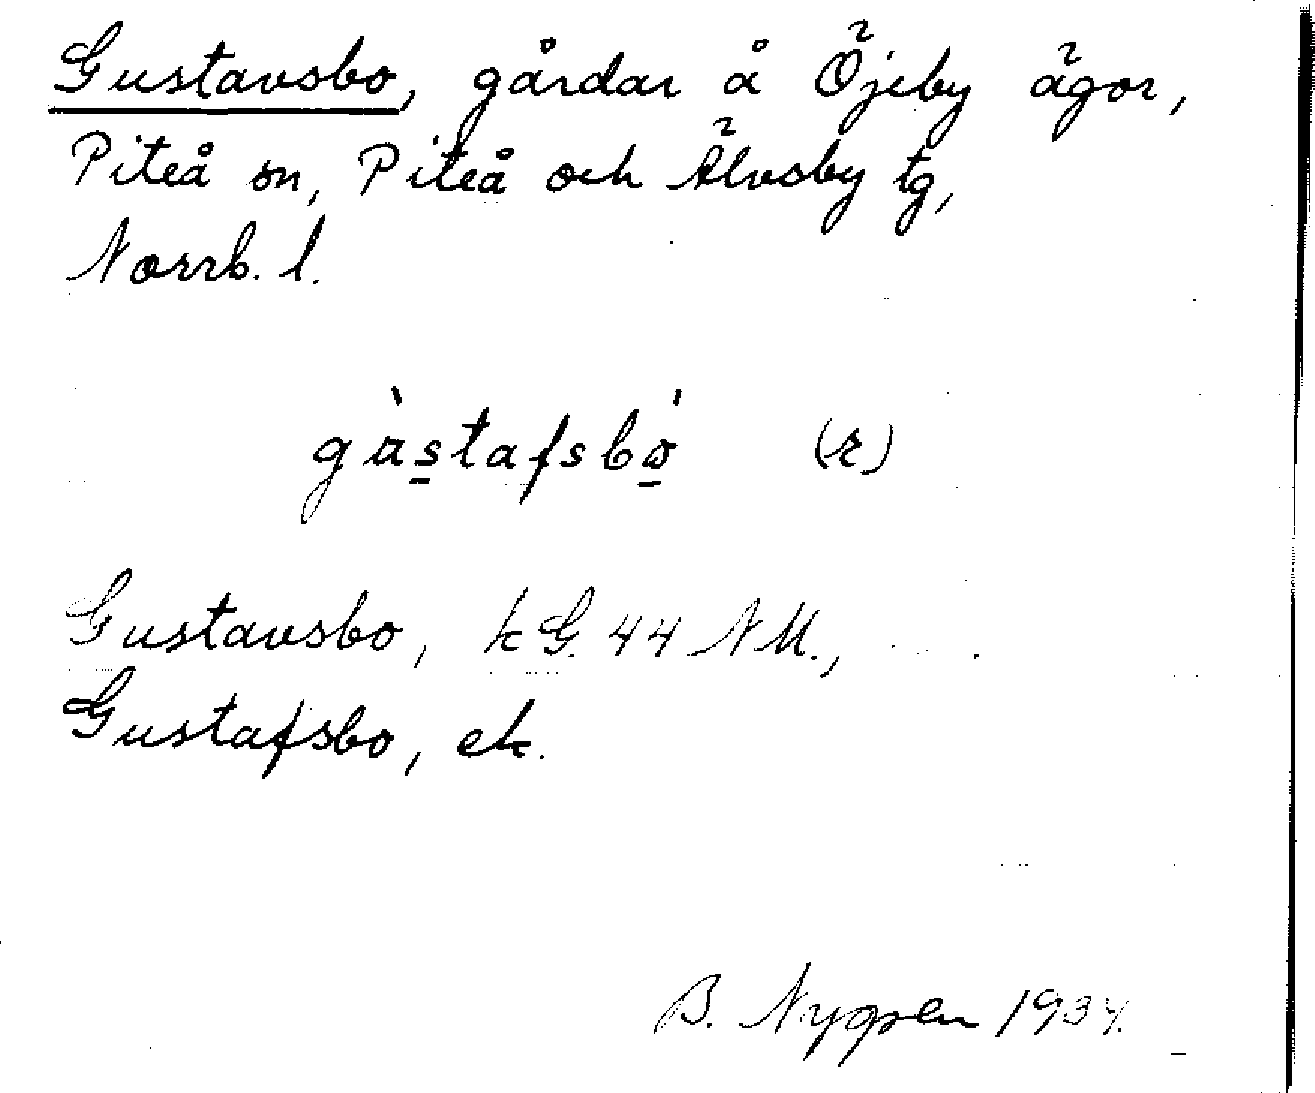 Gustavsbo, gårdar å Öjeby ägor,
Piteå sn, Piteå och Älvsby tg,
Norrb. l.
gàstafsbò (r)
Gustavsbo, kG. 44 NM.,
Gustafsbo, ek.
B. Nygren 1934.